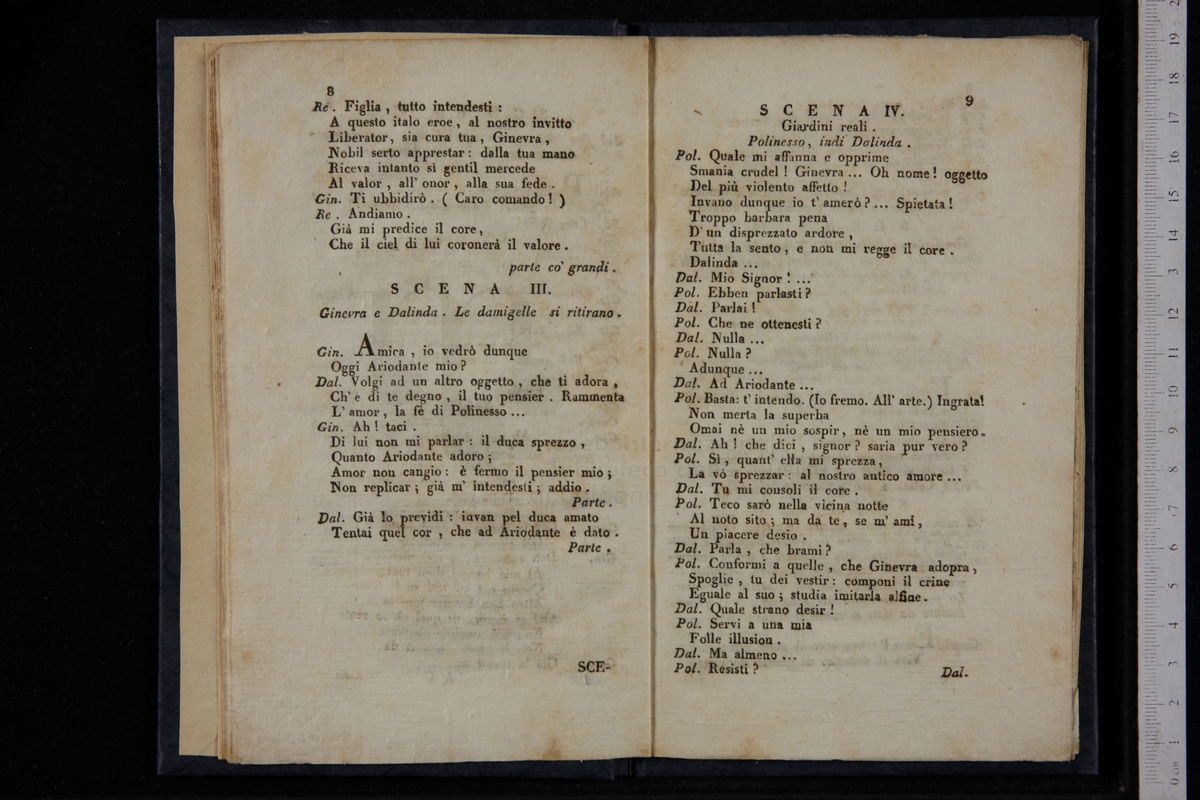 8
Re. Figlia, tutto intendesti:
A questo italo eroe, al nostro invitto
Liberator, sia cura tua, Ginevra,
Nobil serto apprestar: dalla tua mano
Riceva intanto sì gentil mercede
Al valor, all' onor, alla sua fede.
Gin. Ti ubbidirò. ( Caro comando! )
Re. Andiamo.
Già mi predice il core,
Che il ciel di lui coronerà il valore.
parte co' grandi.
SCENA III.
Ginevra e Dalinda. Le damigelle si ritirano.
Gin. Amica, io vedrò dunque
Oggi Ariodante mio?
Dal. Volgi ad un altro oggetto, che ti adora,
Ch' e di te degno, il tuo pensier. Rammenta
L' amor, la fè di Polinesso ...
Gin. Ah! taci.
Di lui non mi parlar: il duca sprezzo,
Quanto Ariodante adoro;
Amor non cangio: è fermo il pensier mio;
Non replicar; già m' intendesti; addio.
Parte.
Dal. Già lo previdi: invan pel duca amato
Tentai quel cor, che ad Ariodante è dato.
Parte.
SCE-
9
SCENA IV.
Giardini reali.
Polinesso, indi Dalinda.
Pol. Quale mi affanna e opprime
Smania crudel! Ginevra ... Oh nome! oggetto
Del più violento affetto!
Invano dunque io t' amerò?... Spietata!
Troppo barbara pena
D' un disprezzato ardore,
Tutta la sento, e non mi regge il core.
Dalinda ...
Dal. Mio Signor! ...
Pol. Ebben parlasti?
Dal. Parlai!
Pol. Che ne ottenesti?
Dal. Nulla ...
Pol. Nulla?
Adunque ...
Dal. Ad Ariodante ...
Pol. Basta: t' intendo. (Io fremo. All' arte.) Ingrata!
Non merta la superba
Omai nè un mio sospir, nè un mio pensiero.
Dal. Ah! che dici, signor? saria pur vero?
Pol. Sì, quant' ella mi sprezza,
La vò sprezzar: al nostro antico amore ...
Dal. Tu mi consoli il core.
Pol. Teco sarò nella vicina notte
Al noto sito; ma da te, se m' ami,
Un piacere desio.
Dal. Parla, che brami?
Pol. Conformi a quelle, che Ginevra adopra,
Spoglie, tu dei vestir: componi il crine
Eguale al suo; studia imitarla alfine.
Dal. Quale strano desir!
Pol. Servi a una mia
Folle illusion.
Dal. Ma almeno ...
Pol. Resisti?
Dal-